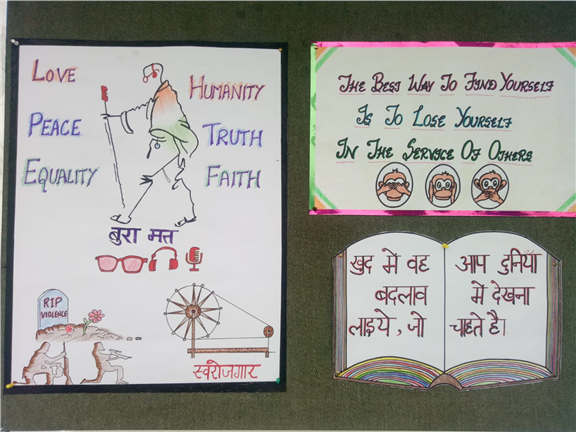 LOVE
PEACE
EQUALITY
HUMANITY
TRUTH
FAITH
बुरा मत
RIP
VIOLENCE
स्वरोजगार
THE BEST WAY TO FIND YOURSELF
IS TO LOSE YOURSELF
IN THE SERVICE OF OTHERS
खुद में वह
बदलाव
लाइये, जो
आप दुनिया
में देखना
चाहते है।